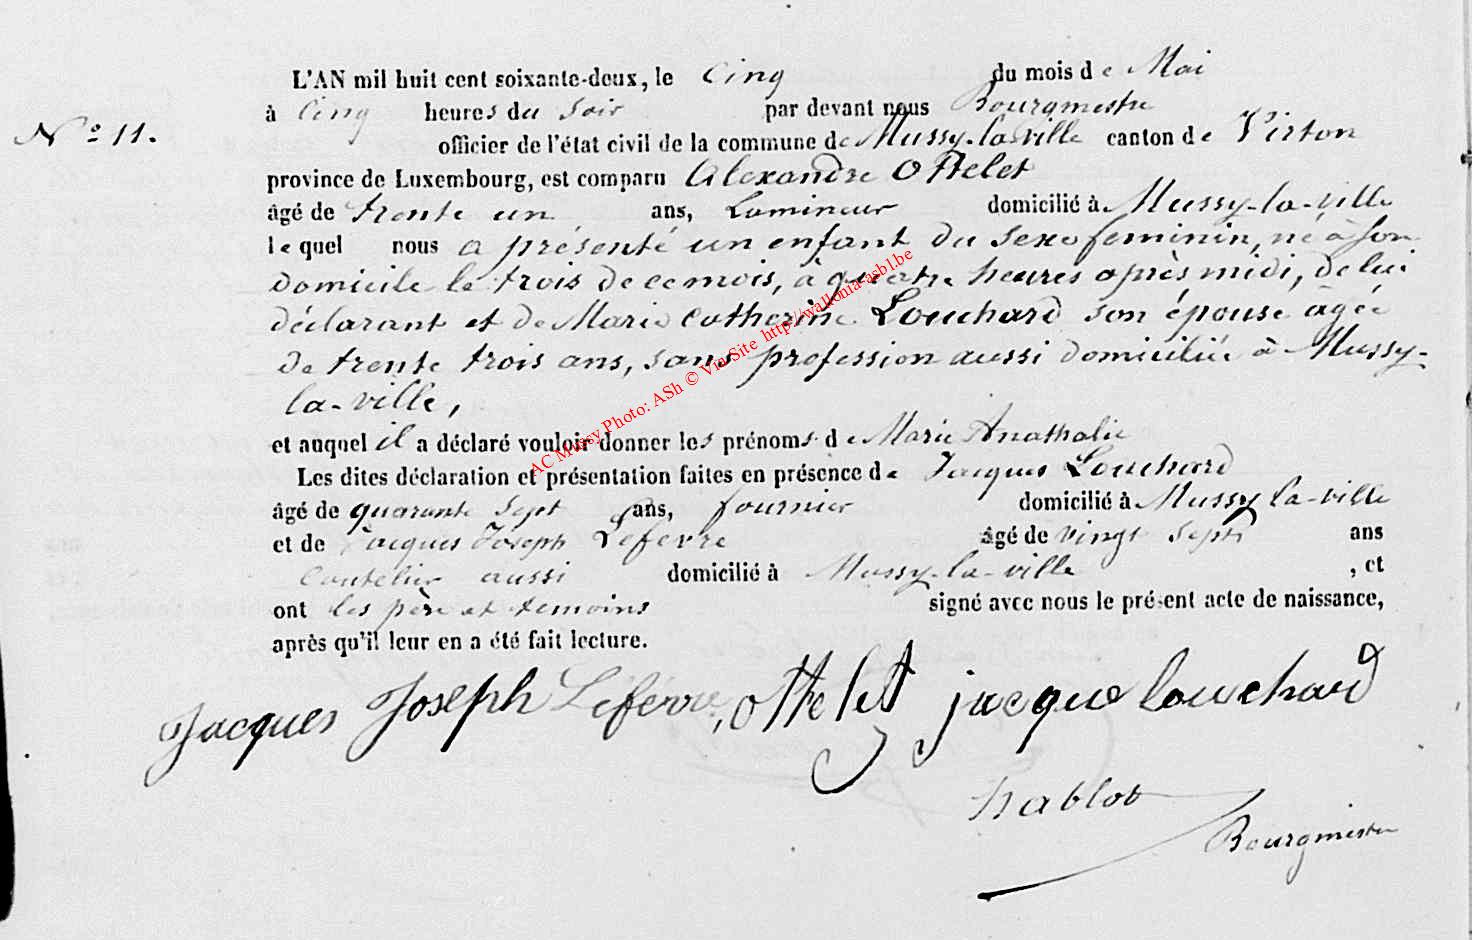 L'AN mil huit cent soixante-deux, le Cinq du mois de Mai
à Cinq heures du Soir par devant nous Bourgmestre
N° 11.
officier de l'état civil de la commune de Mussy-la-ville canton de Virton
province de Luxembourg, est comparu Alexandre Ottelet
âgé de trente un ans, Lamineur domicilié à Mussy-la-ville
lequel nous a présenté un enfant du sexe feminin, né à son
domicile le trois de ce mois, à quatre heures après midi, de lui
déclarant et de Marie Catherine Louchard son épouse âgée
de trente trois ans, sans profession aussi domiciliée à Mussy-
la-ville,
et auquel il a déclaré vouloir donner les prénoms de Marie Anathalie
Les dites déclaration et présentation faites en présence de Jacques Louchard
âgé de quarante sept ans, fournier domicilié à Mussy la-ville
et de Jacques Joseph Lefevre âgé de vingt sept ans
Coutelier aussi domicilié à Mussy-la-ville , et
ont les père et temoins signé avec nous le présent acte de naissance,
après qu'il leur en a été fait lecture.
Jacques Joseph Léfévre, Ottelet jacque louchard
hablot
Bourgmestre
AC Mussy Photo: ASh © Via Site http://wallonia-asbl.be